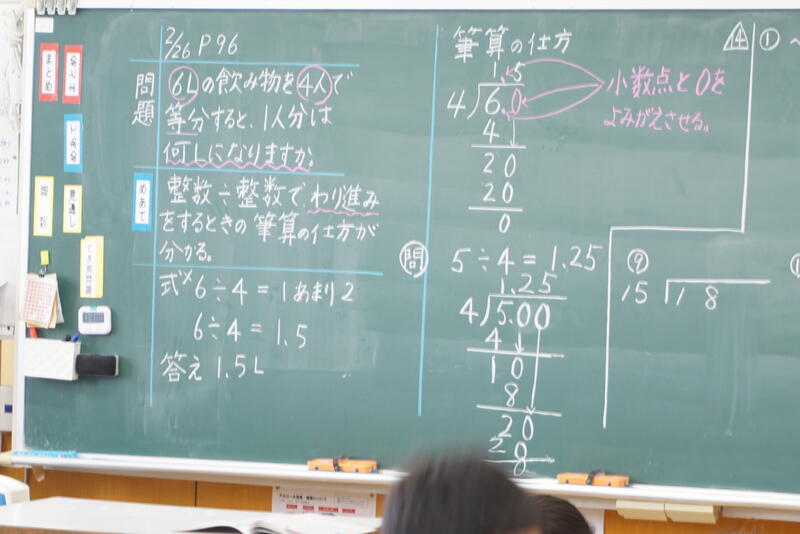 2/26 P96
問題
6Lの飲み物を4人で
等分すると、1人分は
何Lになりますか。
めあて
整数÷整数で、わり進み
をするときの筆算の仕方が
分かる。
式 × 6÷4=1あまり2
6÷4=1.5
答え 1.5L
まとめ
見通し
筆算の仕方
1.5
4)6.0
4
20
20
0
小数点と0を
よみがえさせる。
問
5÷4=1.25
1.25
4)5.00
4
10
8
20
20
0
4 ①
⑨
15)18